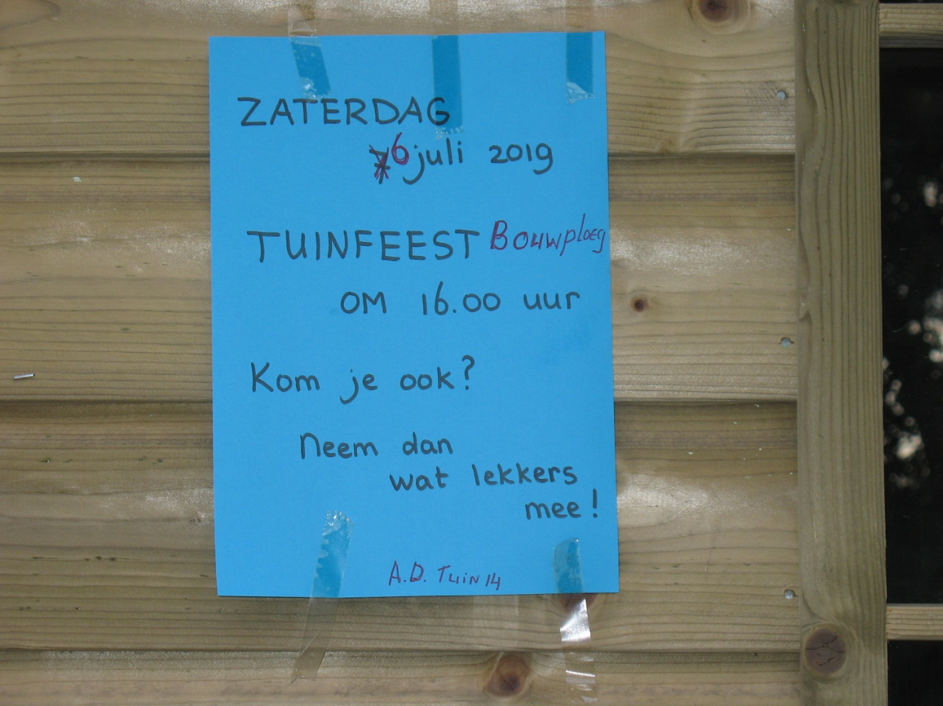 ZATERDAG
6 juli 2019
TUINFEEST Bouwploeg
OM 16.00 uur
Kom je ook?
Neem dan
wat lekkers
mee!
A.D. Tuin 14